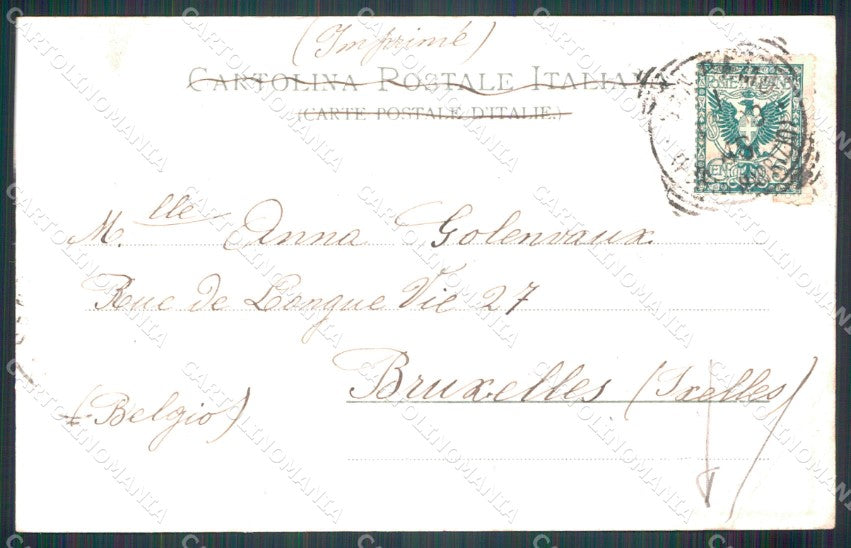 (Imprimé)
CARTOLINA POSTALE ITALIANA
(CARTE POSTALE D'ITALIE.)
M.lle Anna Golenvaux
Rue de Longue Vie 27
Bruxelles (Ixelles)
(Belgio)
CARTOLINOMANIA